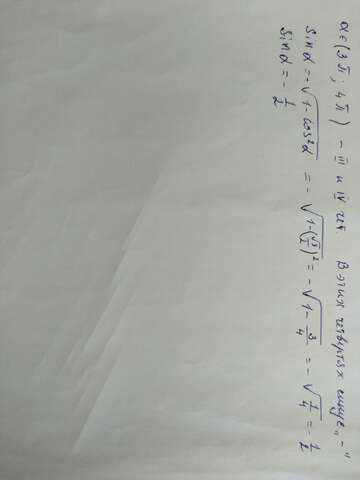 α∈(3π; 4π) – III и IV чет. В этих четвертях синус „–"
sinα = -√(1-cos²α) = -√(1-(√3/2)²) = -√(1-3/4) = -√(1/4) = -1/2
sinα = -1/2